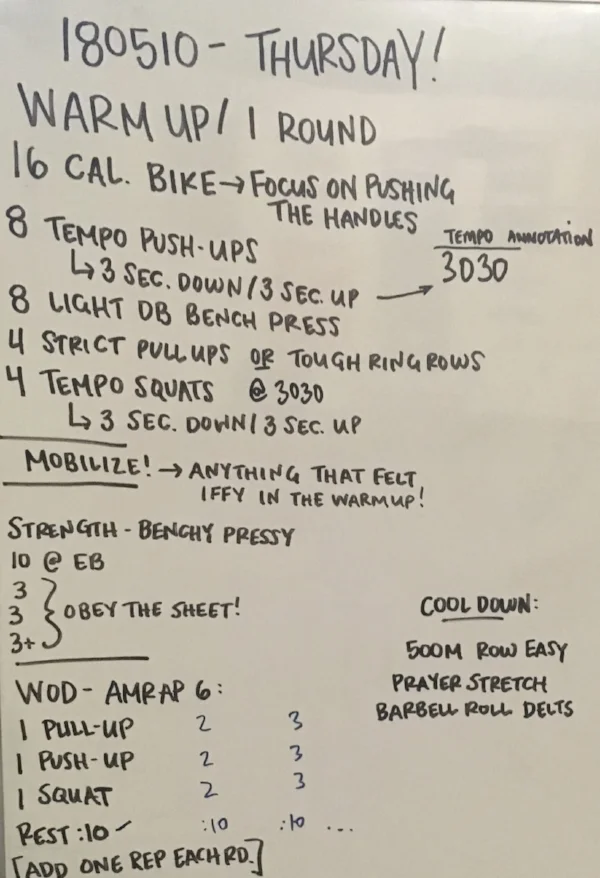 180510 - THURSDAY!
WARM UP / 1 ROUND
16 CAL. BIKE → FOCUS ON PUSHING
THE HANDLES
8 TEMPO PUSH-UPS
↳ 3 SEC. DOWN / 3 SEC. UP →
TEMPO ANNOTATION
3030
8 LIGHT DB BENCH PRESS
4 STRICT PULLUPS OR TOUGH RING ROWS
4 TEMPO SQUATS @ 3030
↳ 3 SEC. DOWN / 3 SEC. UP
MOBILIZE! → ANYTHING THAT FELT
IFFY IN THE WARMUP!
STRENGTH - BENCHY PRESSY
10 @ EB
3
3 } OBEY THE SHEET!
3+
WOD - AMRAP 6:
1 PULL-UP 2 3
1 PUSH-UP 2 3
1 SQUAT 2 3
REST :10 :10 :10 ...
[ADD ONE REP EACH RD.]
COOL DOWN:
500M ROW EASY
PRAYER STRETCH
BARBELL ROLL DELTS